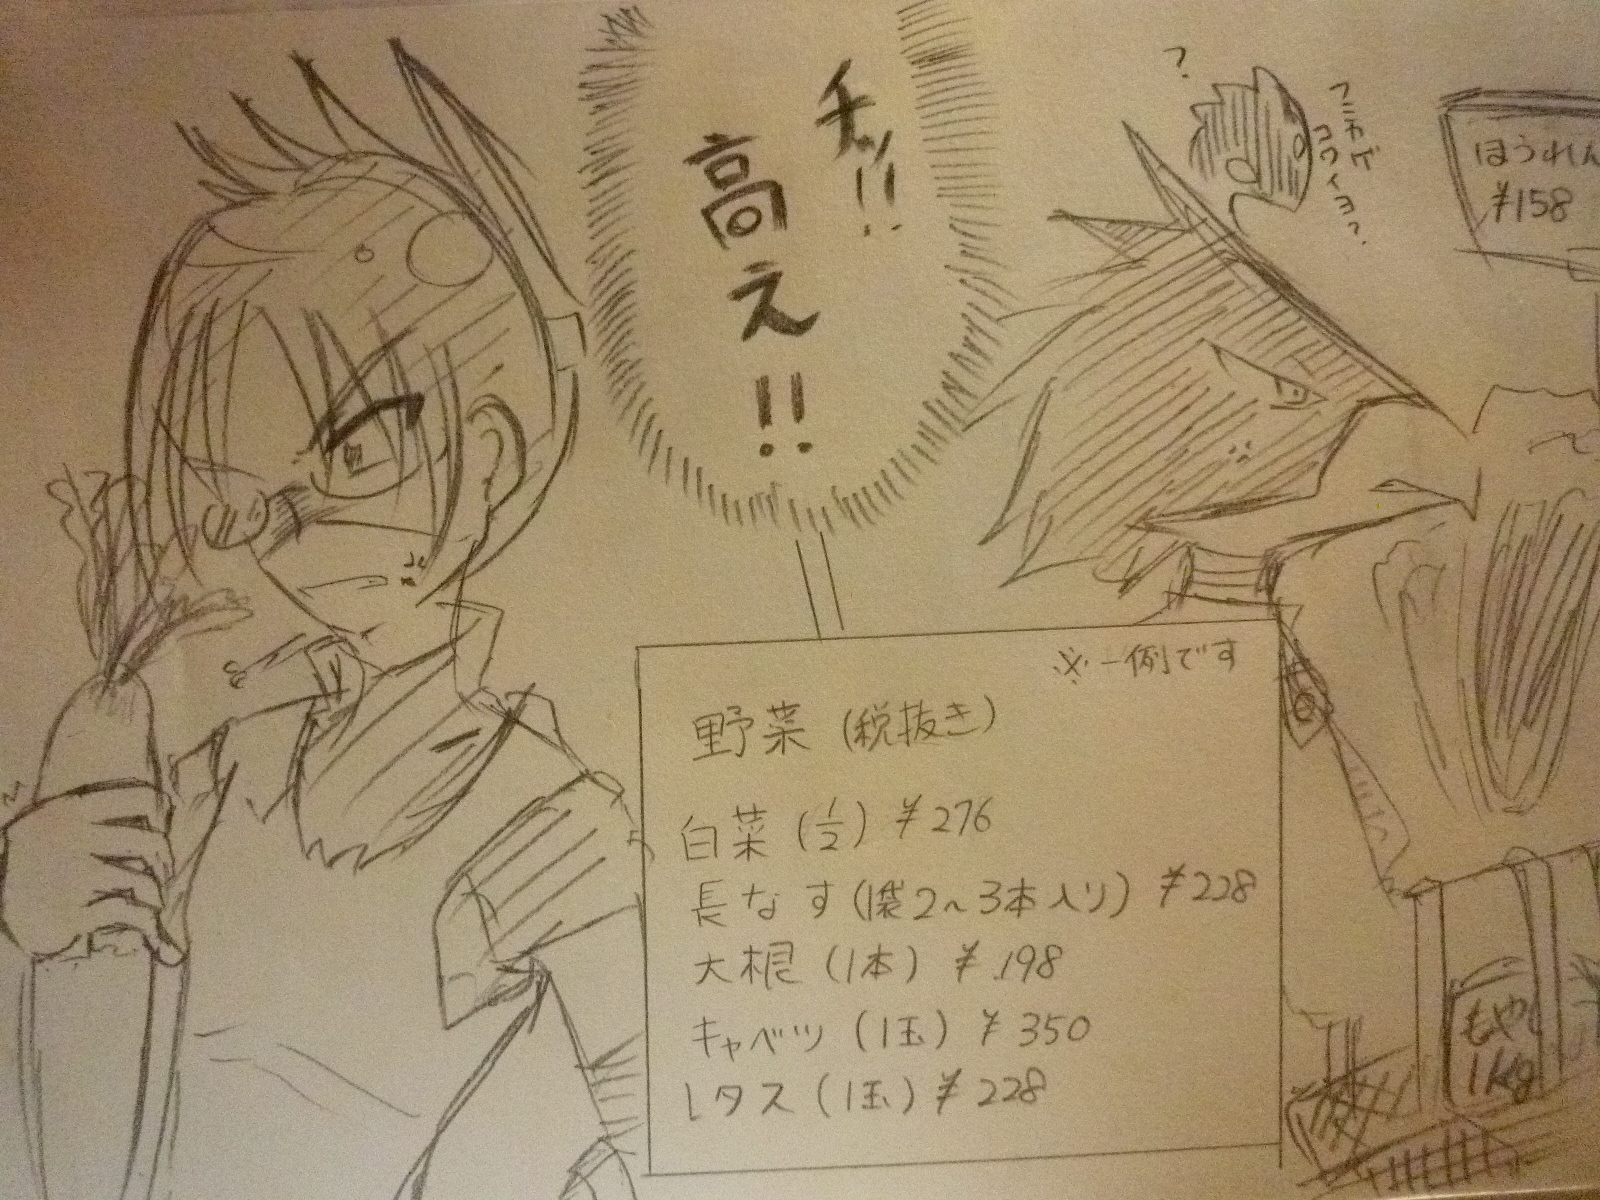 チッ!!
高え!!
?
フニャビ
コワイヨ?
ほうれん
¥158
※一例です
野菜(税抜き)
白菜(1/2) ¥276
長なす(1袋2～3本入り) ¥228
大根(1本) ¥198
キャベツ(1玉) ¥350
レタス(1玉) ¥228
もやし
1kg